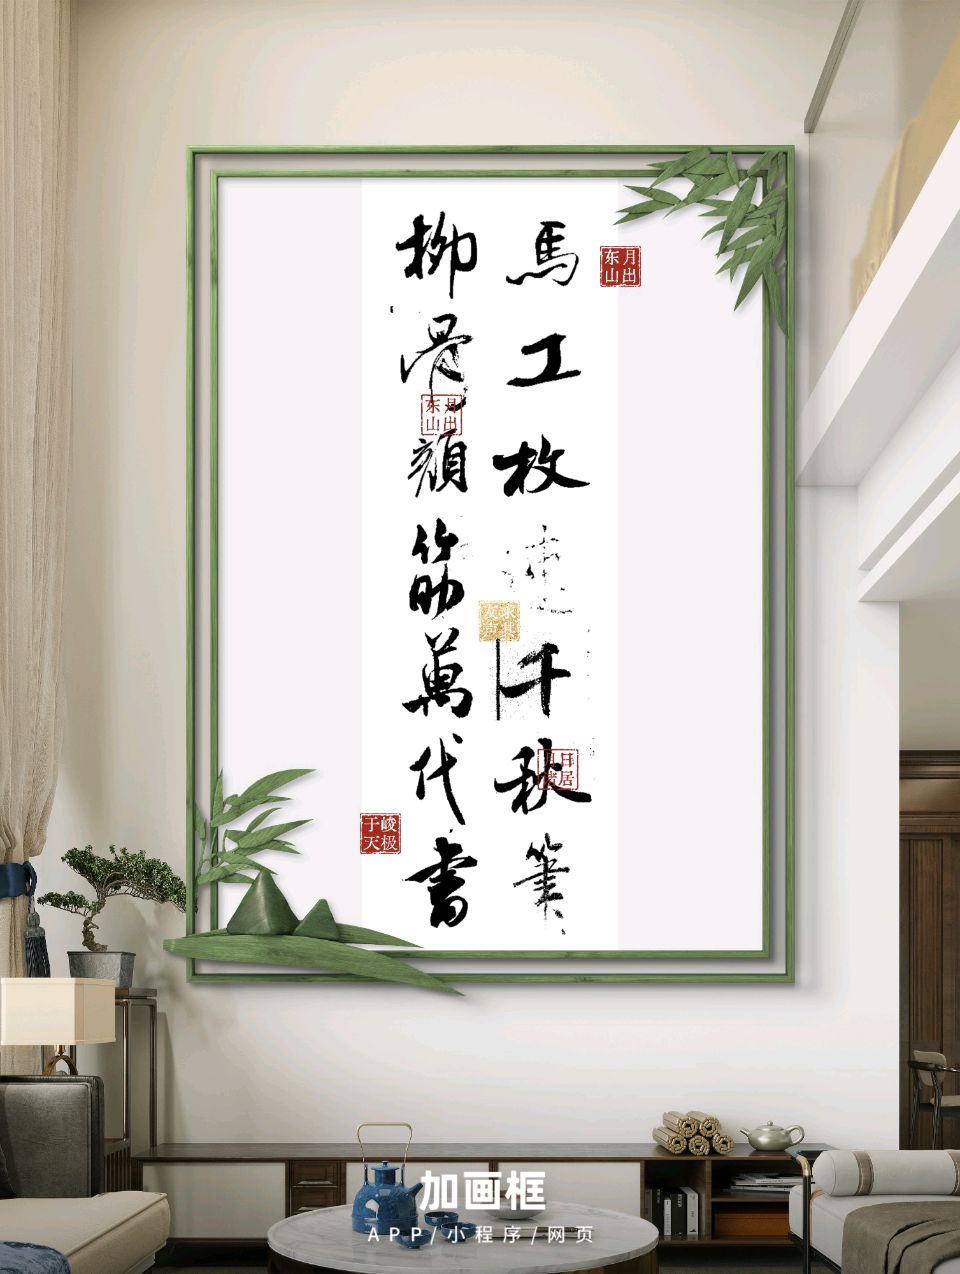 馬工枚速千秋筆
柳骨顔筋萬代書
月出东山
月出东山
日居月诸
峻极于天
加画框
APP/小程序/网页